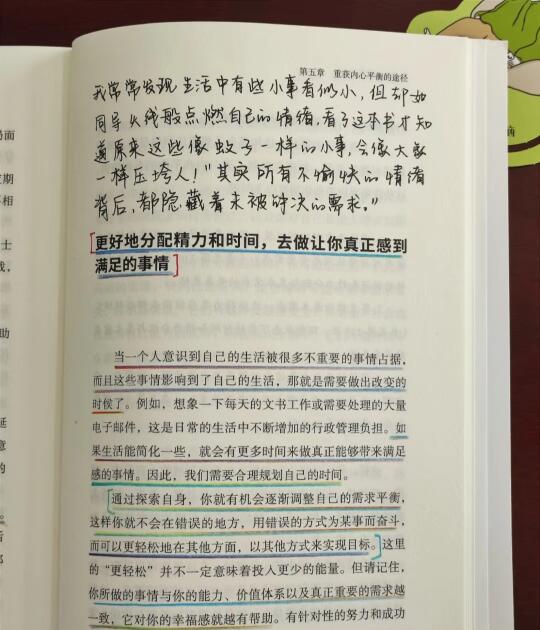 第五章 重获内心平衡的途径
我常常发现生活中有些小事看似小，但却如
同导火线般点燃自己的情绪，看了这本书才知
道原来这些像蚊子一样的小事，会像大象
一样压垮人！"其实所有不愉快的情绪
背后，都隐藏着未被解决的需求。"
更好地分配精力和时间，去做让你真正感到
满足的事情
当一个人意识到自己的生活被很多不重要的事情占据，
而且这些事情影响到了自己的生活，那就是需要做出改变的
时候了。例如，想象一下每天的文书工作或需要处理的大量
电子邮件，这是日常的生活中不断增加的行政管理负担。如
果生活能简化一些，就会有更多时间来做真正能够带来满足
感的事情。因此，我们需要合理规划自己的时间。
通过探索自身，你就有机会逐渐调整自己的需求平衡，
这样你就不会在错误的地方，用错误的方式为某事而奋斗，
而可以更轻松地在其他方面，以其他方式来实现目标。这里
的“更轻松”并不一定意味着投入更少的能量。但请记住，
你所做的事情与你的能力、价值体系以及真正重要的需求越
一致，它对你的幸福感就越有帮助。有针对性的努力和成功